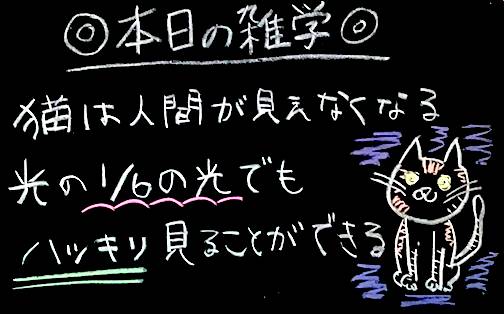 ◎本日の雑学◎
猫は人間が見えなくなる
光の1/6の光でも
ハッキリ見ることができる